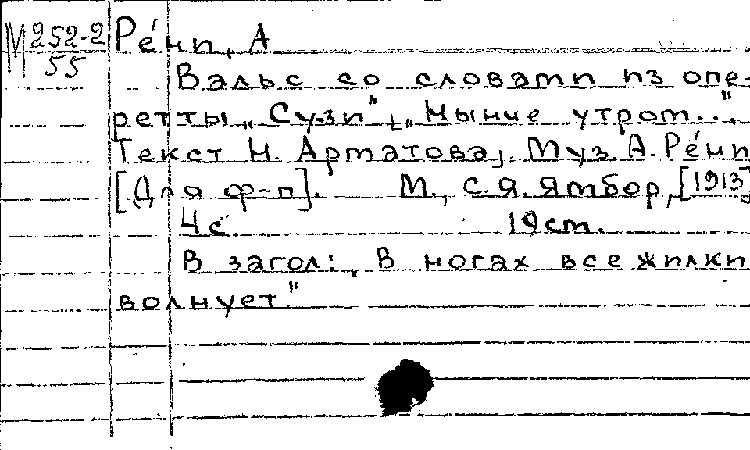 М 252-2 Ре́ни, А
55
Вальс со словами из опе-
ретты „Сузи", „Нынче утром..."
Текст Н. Арматова, Муз. А. Ре́ни
[Для ф-п]. М., С.Я. Ямбор, [1913]
4с. 19cm.
В загол: „В ногах все жилки
волнует"